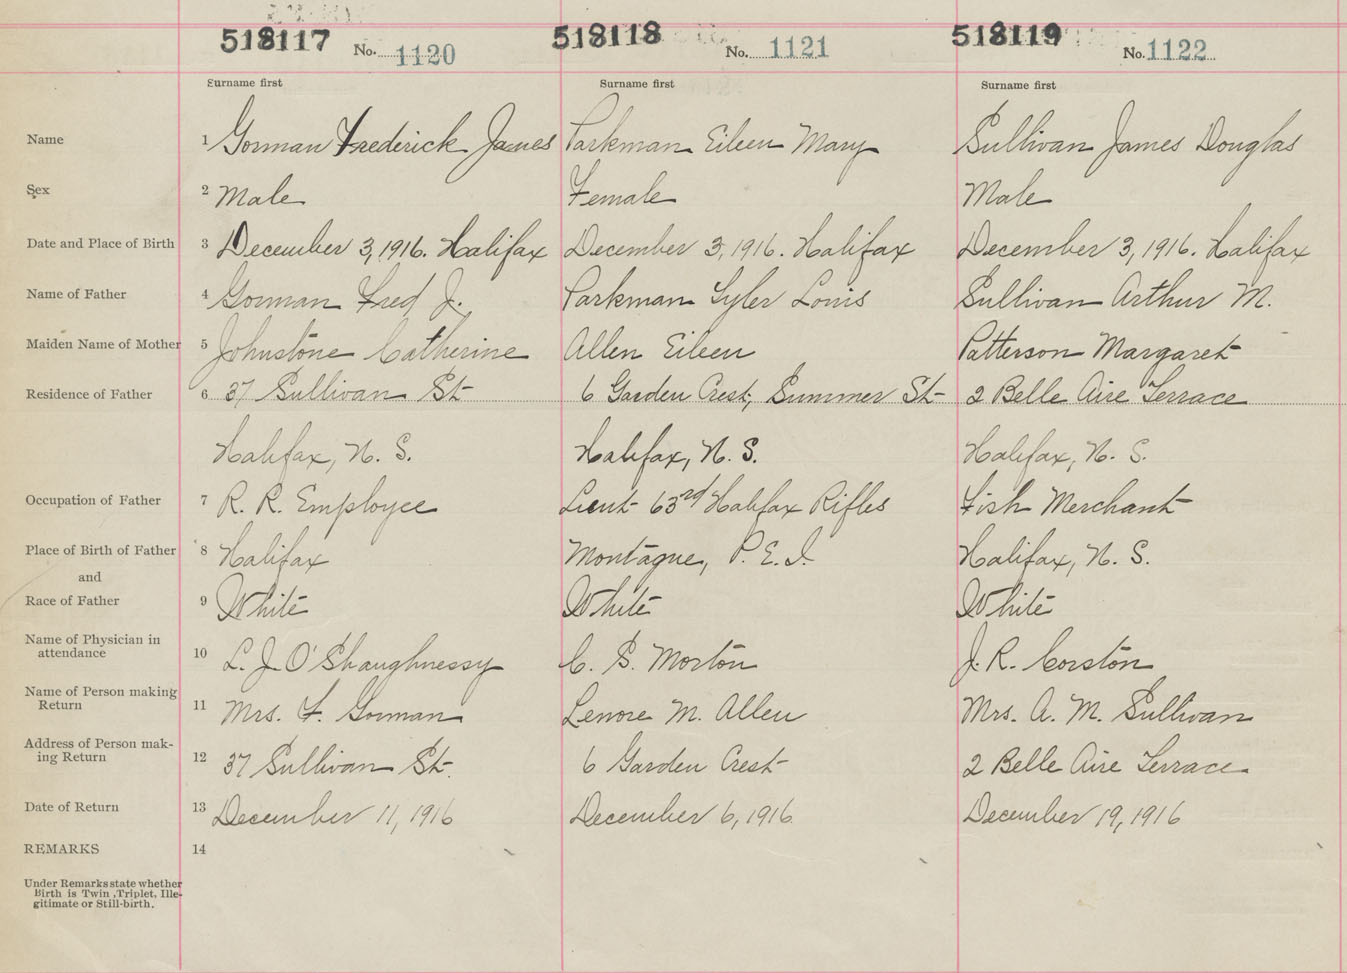 518117 No. 1120 518118 No. 1121 518119 No. 1122
Surname first Surname first Surname first
Name 1 Gorman Frederick James Parkman Eileen Mary Sullivan James Douglas
Sex 2 Male Female Male
Date and Place of Birth 3 December 3, 1916. Halifax December 3, 1916. Halifax December 3, 1916. Halifax
Name of Father 4 Gorman Fred J. Parkman Tyler Louis Sullivan Arthur M.
Maiden Name of Mother 5 Johnstone Catherine Allen Eileen Patterson Margaret
Residence of Father 6 37 Sullivan St 6 Garden Crest, Summer St 2 Belle Aire Terrace
Halifax, N. S. Halifax, N. S. Halifax, N. S.
Occupation of Father 7 R. R. Employee Lieut 63rd Halifax Rifles Fish Merchant
Place of Birth of Father 8 Halifax Montague, P. E. I. Halifax, N. S.
and
Race of Father 9 White White White
Name of Physician in
attendance 10 L. J. O'Shaughnessy C. S. Morton J. R. Corston
Name of Person making
Return 11 Mrs. F. Gorman Lenore M. Allen Mrs. A. M. Sullivan
Address of Person mak-
ing Return 12 37 Sullivan St. 6 Garden Crest 2 Belle Aire Terrace
Date of Return 13 December 11, 1916 December 6, 1916 December 19, 1916
REMARKS 14
Under Remarks state whether
Birth is Twin, Triplet, Ille-
gitimate or Still-birth.